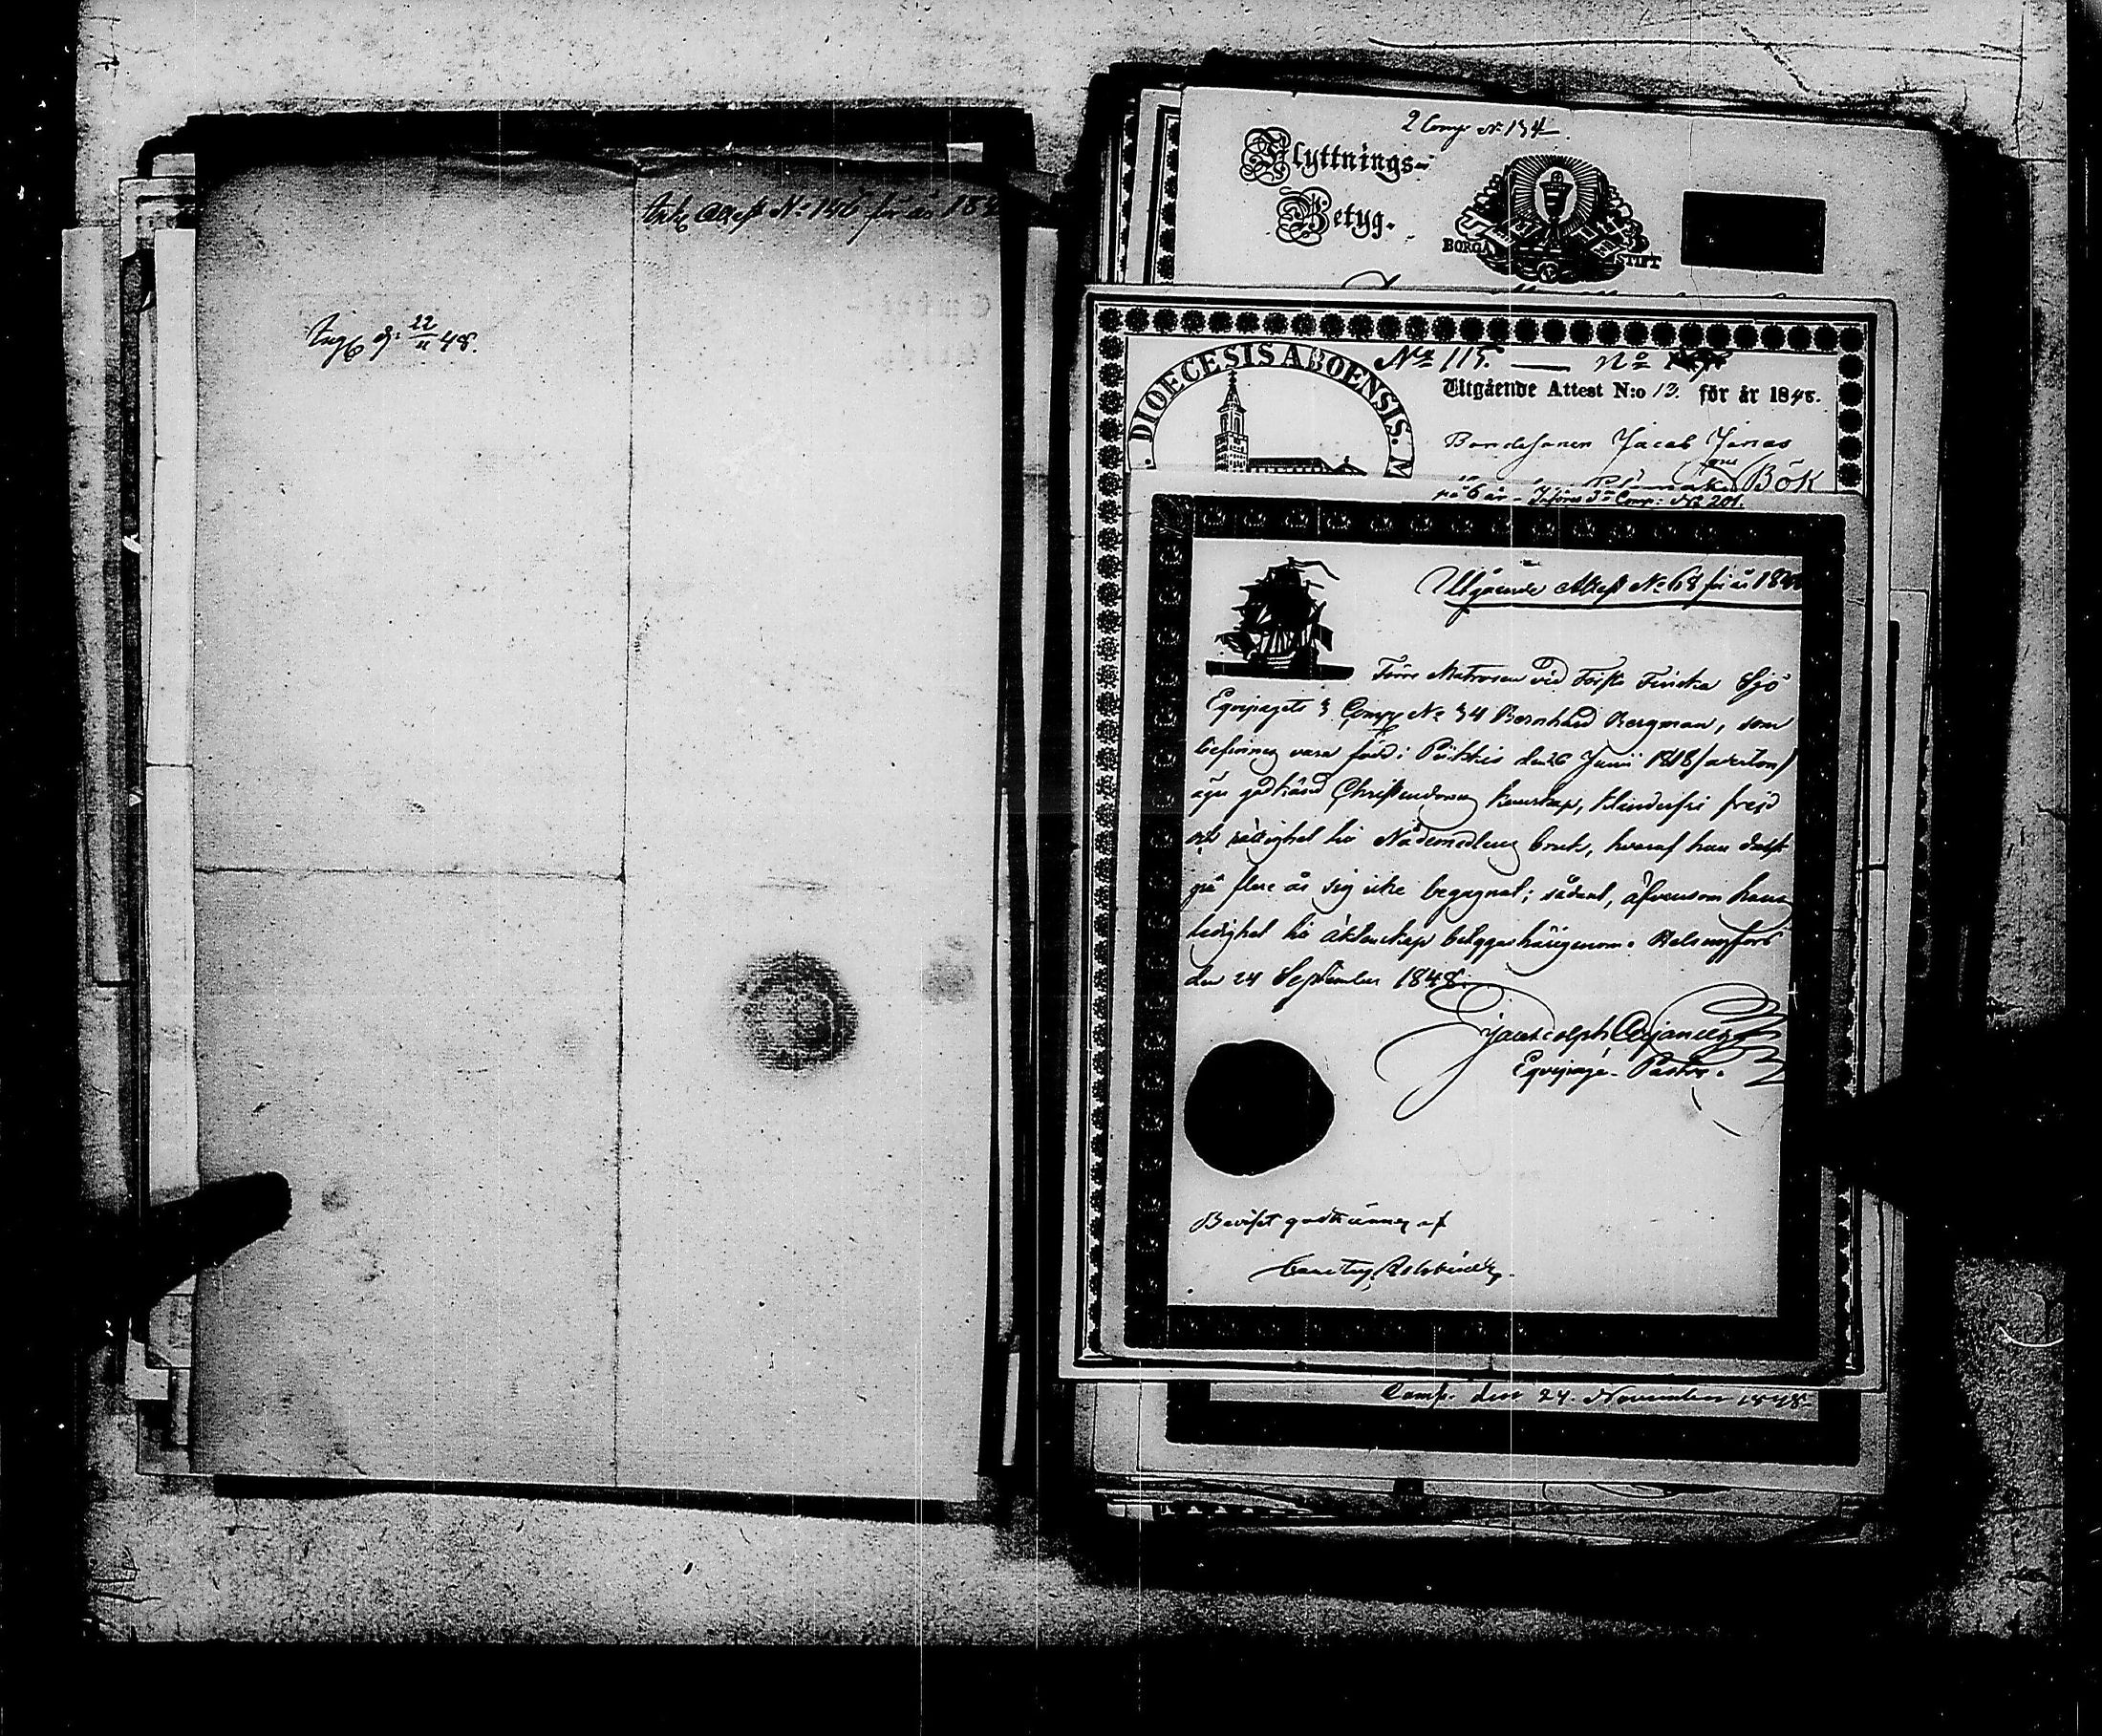 Attest No 146 för år 184
d: 22/11 48.
2 Comp. No 134
Flyttnings-
Betyg.
BORGÅ STIFT
DIOECESIS ABOENSIS. M
No 115. — No
Utgående Attest N:o 13. för år 1848.
Bondesonen Jacob Jonas
Bök
på 6 år - Införes 3:e Comp: No 201.
Utgående Attest No 68 för år 184
Förre Matrosen vid Första Finska Sjö
Equipagets 3 Comp No 34 Bernhard Bergman, som
befinnes vara född i Piikkis den 26 Junii 1818
äger godkänd Christendoms kunskap, klanderfri frejd
och rättighet till Nådemedlens bruk, hvaraf han dock
på flere år sig icke begagnat; sådant, äfvensom hans
ledighet till äktenskap betygas härigenom. Helsingfors
den 24 September 1848.
Equipage-Pastor.
Beviset godkännes af
Camp. den 24. November 1848.